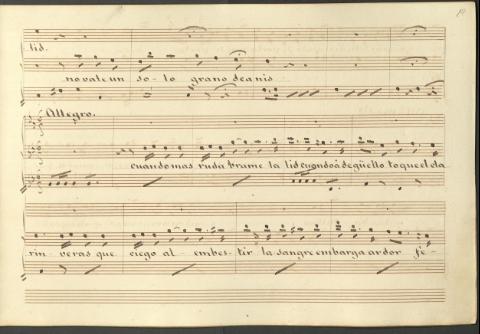 lid.
no vale un so-lo grano de anis
Allegro.
cuando mas ruda brame la lid cuando á degüello toque el cla
rin veras que ciego al embes-tir la sangre embarga ardor fe-